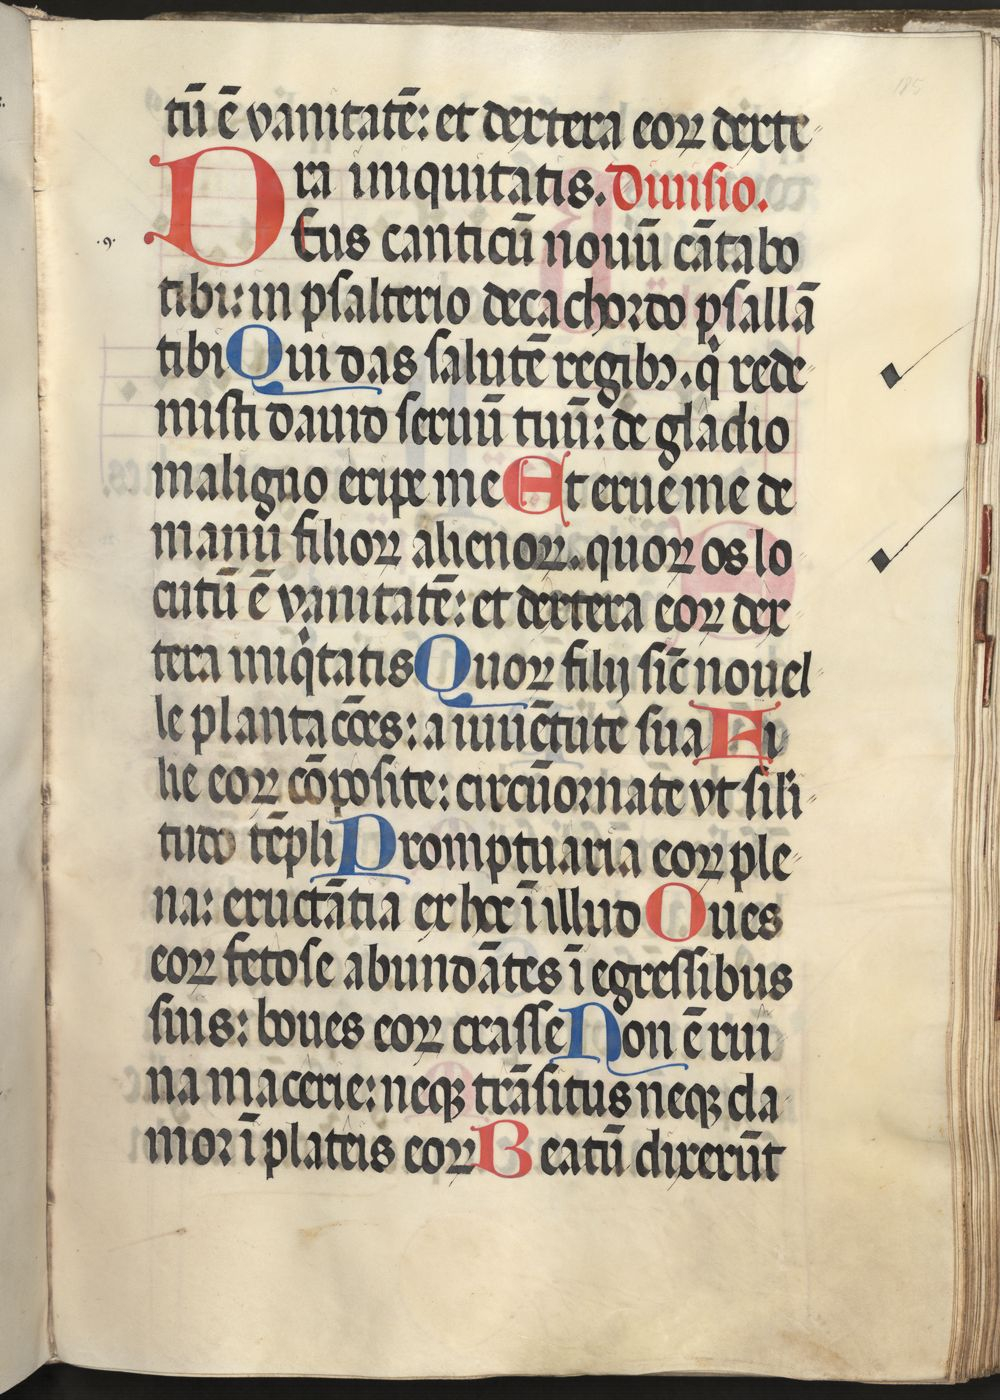 tū ē vanitatē: et dextera eoꝝ dexte
ra iniquitatis. Diuisio.
.9.
Deus canticū nouū cātabo
tibi: in psalterio decachordo psallā
tibi Qui das salutē regibꝫ. q̇ rede
misti dauid seruū tuū: de gladio
maligno eripe me Et erue me de
manu filioꝝ alienoꝝ. quoꝝ os lo
cutū ē vanitatē: et dextera eoꝝ dex
tera iniq̇tatis Quoꝝ filij sic̄ nouel
le plantacōes: a iuuētute sua Fi
lie eoꝝ cōposite: circūornate vt sili
tudo tēpli Promptuaria eoꝝ ple
na: eructātia ex hoc ī illud Oues
eoꝝ fetose abundātes ī egressibus
suis: boues eoꝝ crasse Non ē rui
na macerie: neqꝫ trāsitus neqꝫ cla
mor ī plateis eoꝝ Beatū dixerūt
185